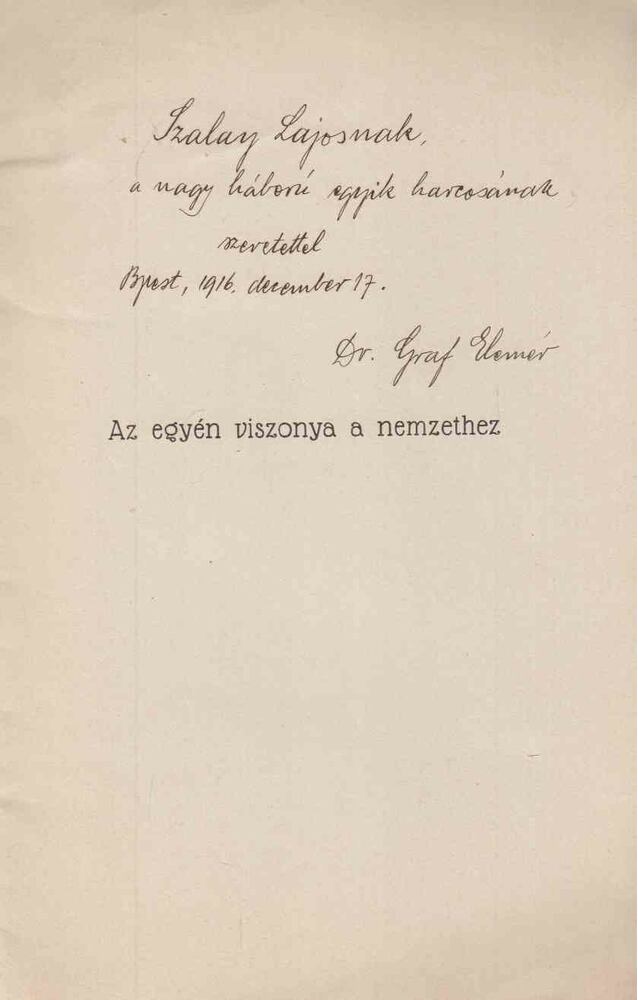 Szalay Lajosnak,
a nagy háború egyik harcosának
szeretettel
Bpest, 1916. december 17.
Dr. Graf Elemér
Az egyén viszonya a nemzethez